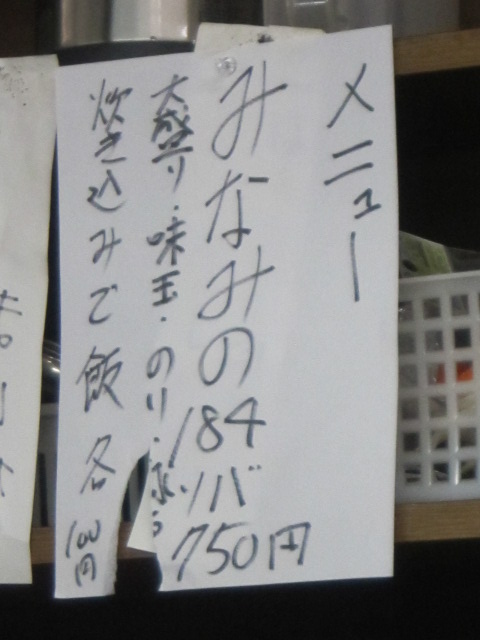 メニュー
みなみの184ソバ
750円
大盛り・味玉・のり・
炊き込みご飯各100円